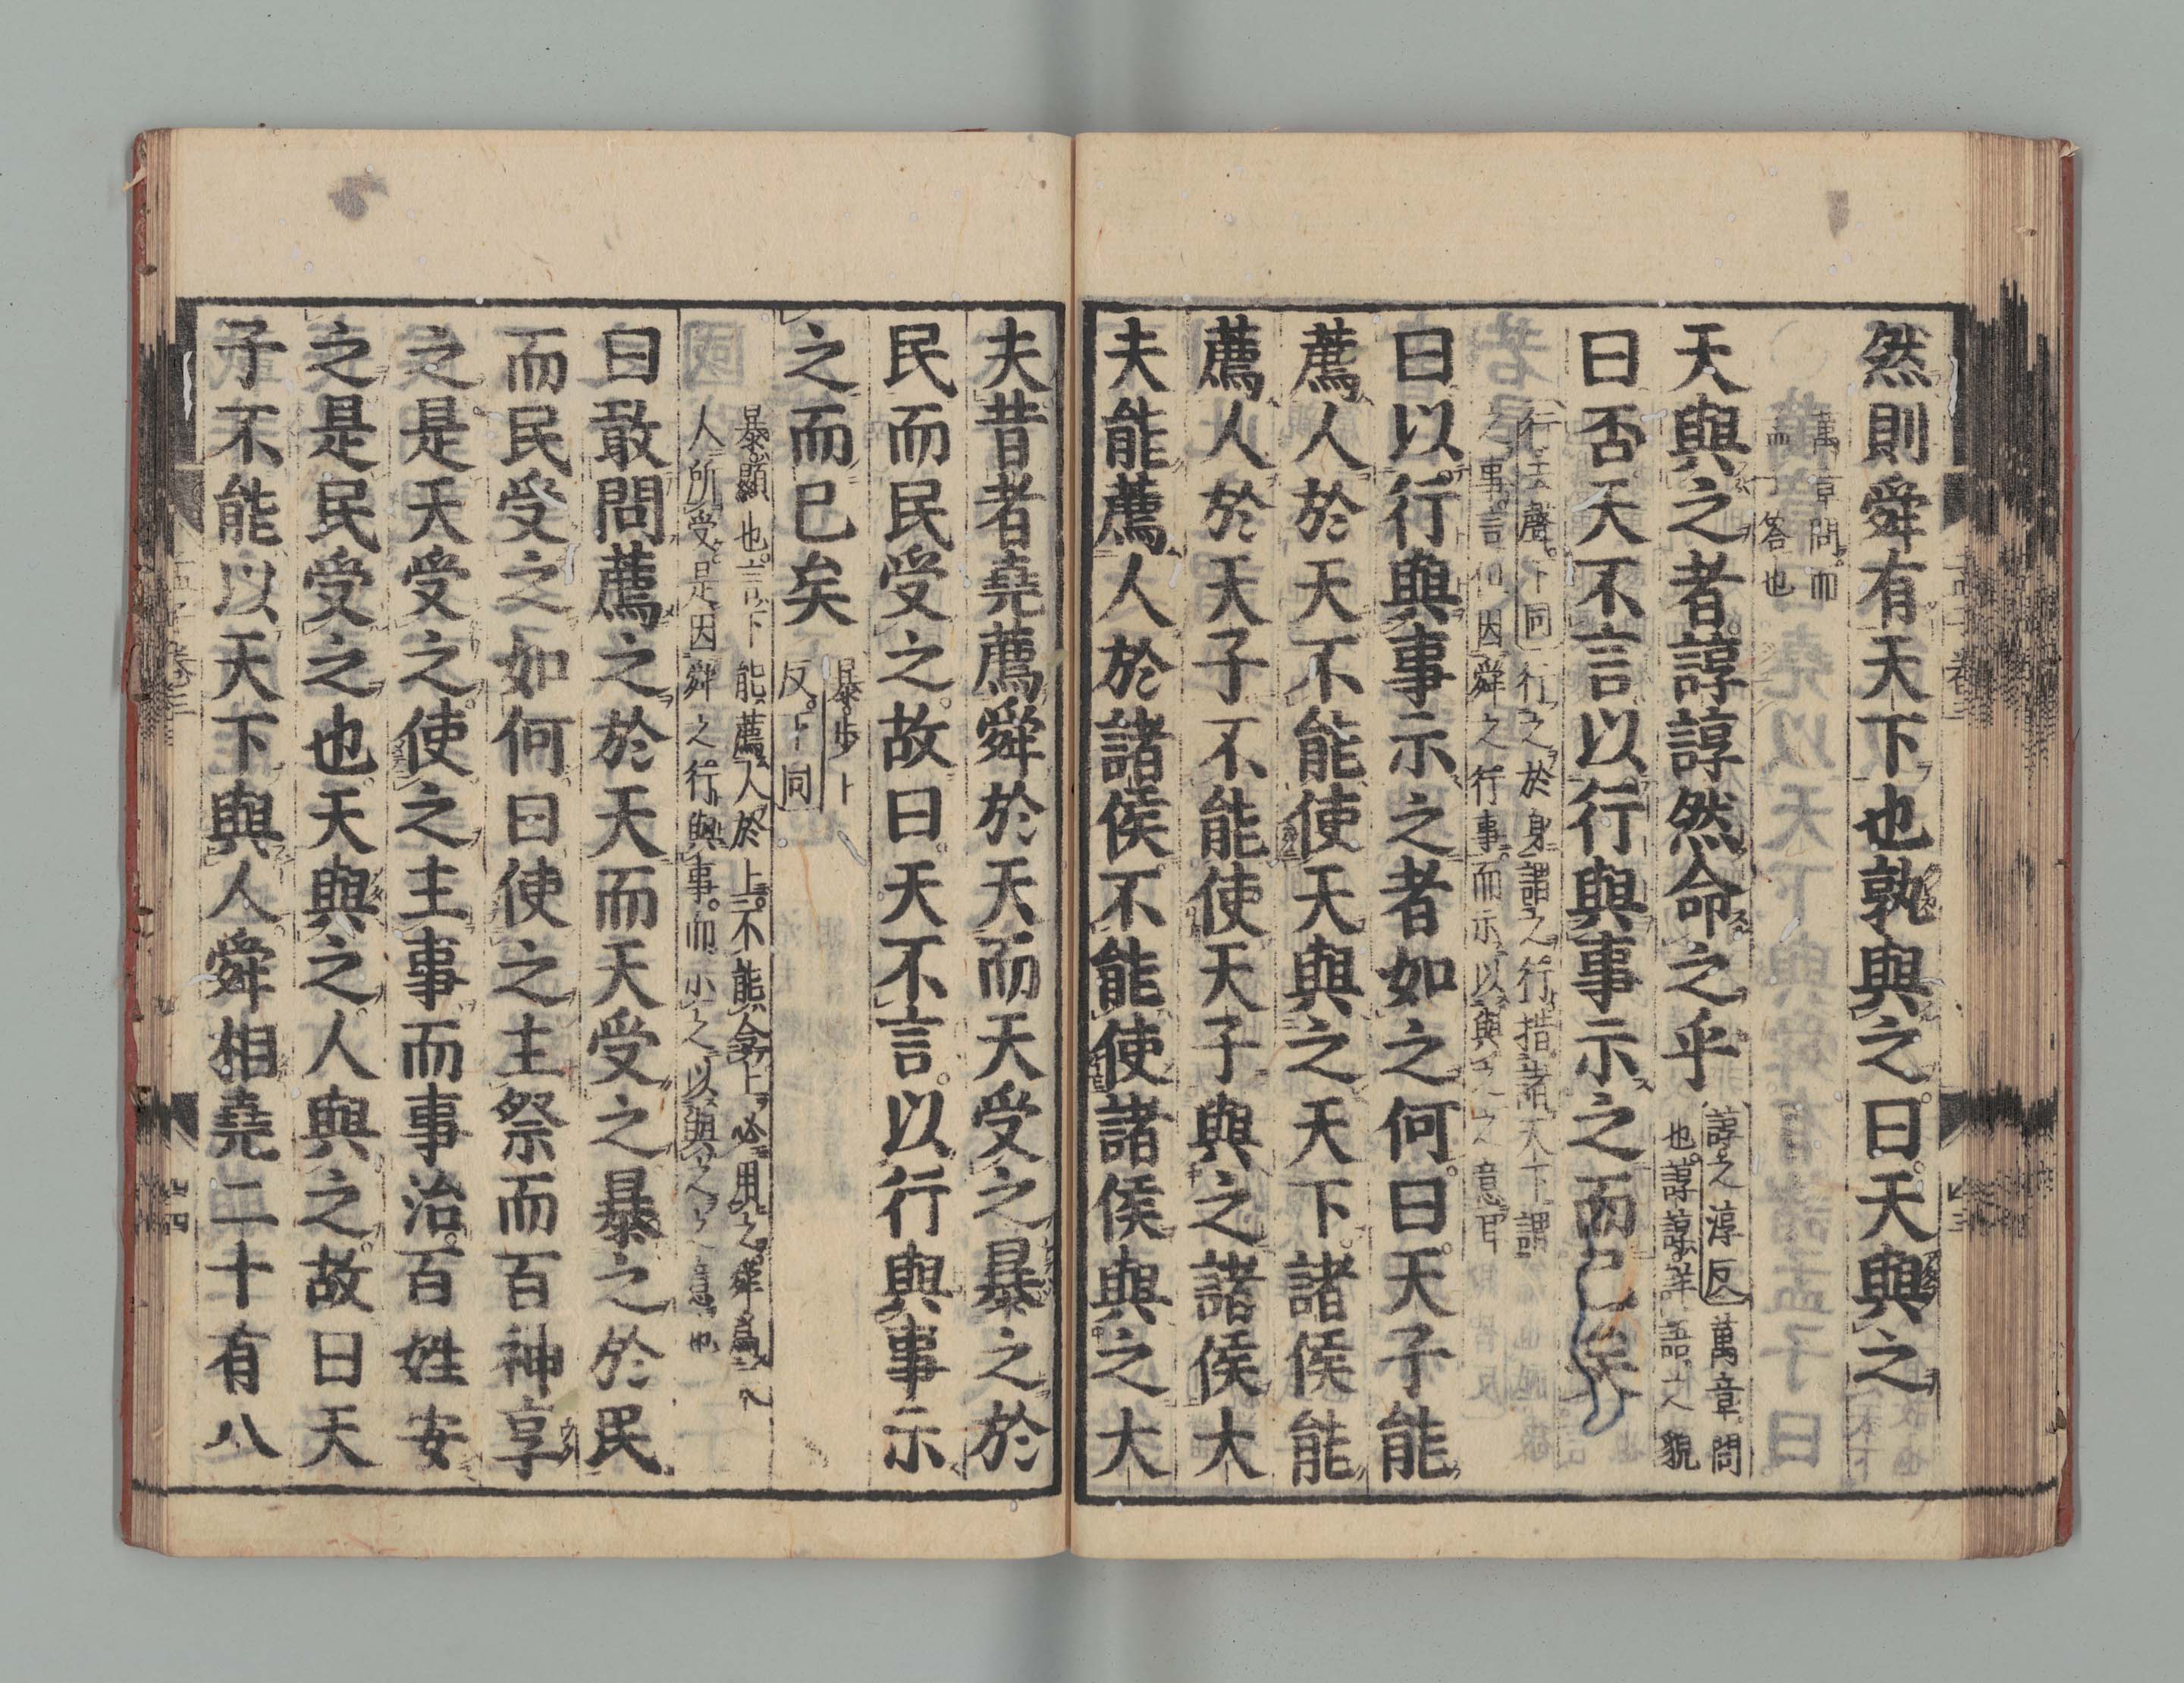 然則舜有天下也孰與之。曰。天與之
萬章問。而
答也
天與之者。諄諄然命之乎
諄之淳反萬章問
也。諄諄。詳語之貌
曰否。天不言。以行與事示之而已矣
行去聲。下同行之於身謂之行。措諸天下謂
之事。言但因舜之行事。而示以與之之意耳
曰以行與事示之者如之何。曰。天子能
薦人於天。不能使天與之天下。諸侯能
薦人於天子。不能使天子與之諸侯。大
夫能薦人於諸侯。不能使諸侯與之大
夫昔者堯薦舜於天。而天受之。暴之於
民而民受之。故曰。天不言。以行與事示
之而已矣
暴。步卜
反。下同
暴。顯也。言下能薦人於上。不能令上必用之。舜為天
人所受。是因舜之行與事。而示之以與之之意也
曰敢問薦之於天而天受之。暴之於民
而民受之如何。曰使之主祭而百神享
之。是天受之。使之主事而事治。百姓安
之。是民受之也。天與之。人與之。故曰天
子不能以天下與人。舜相堯二十有八
四十四